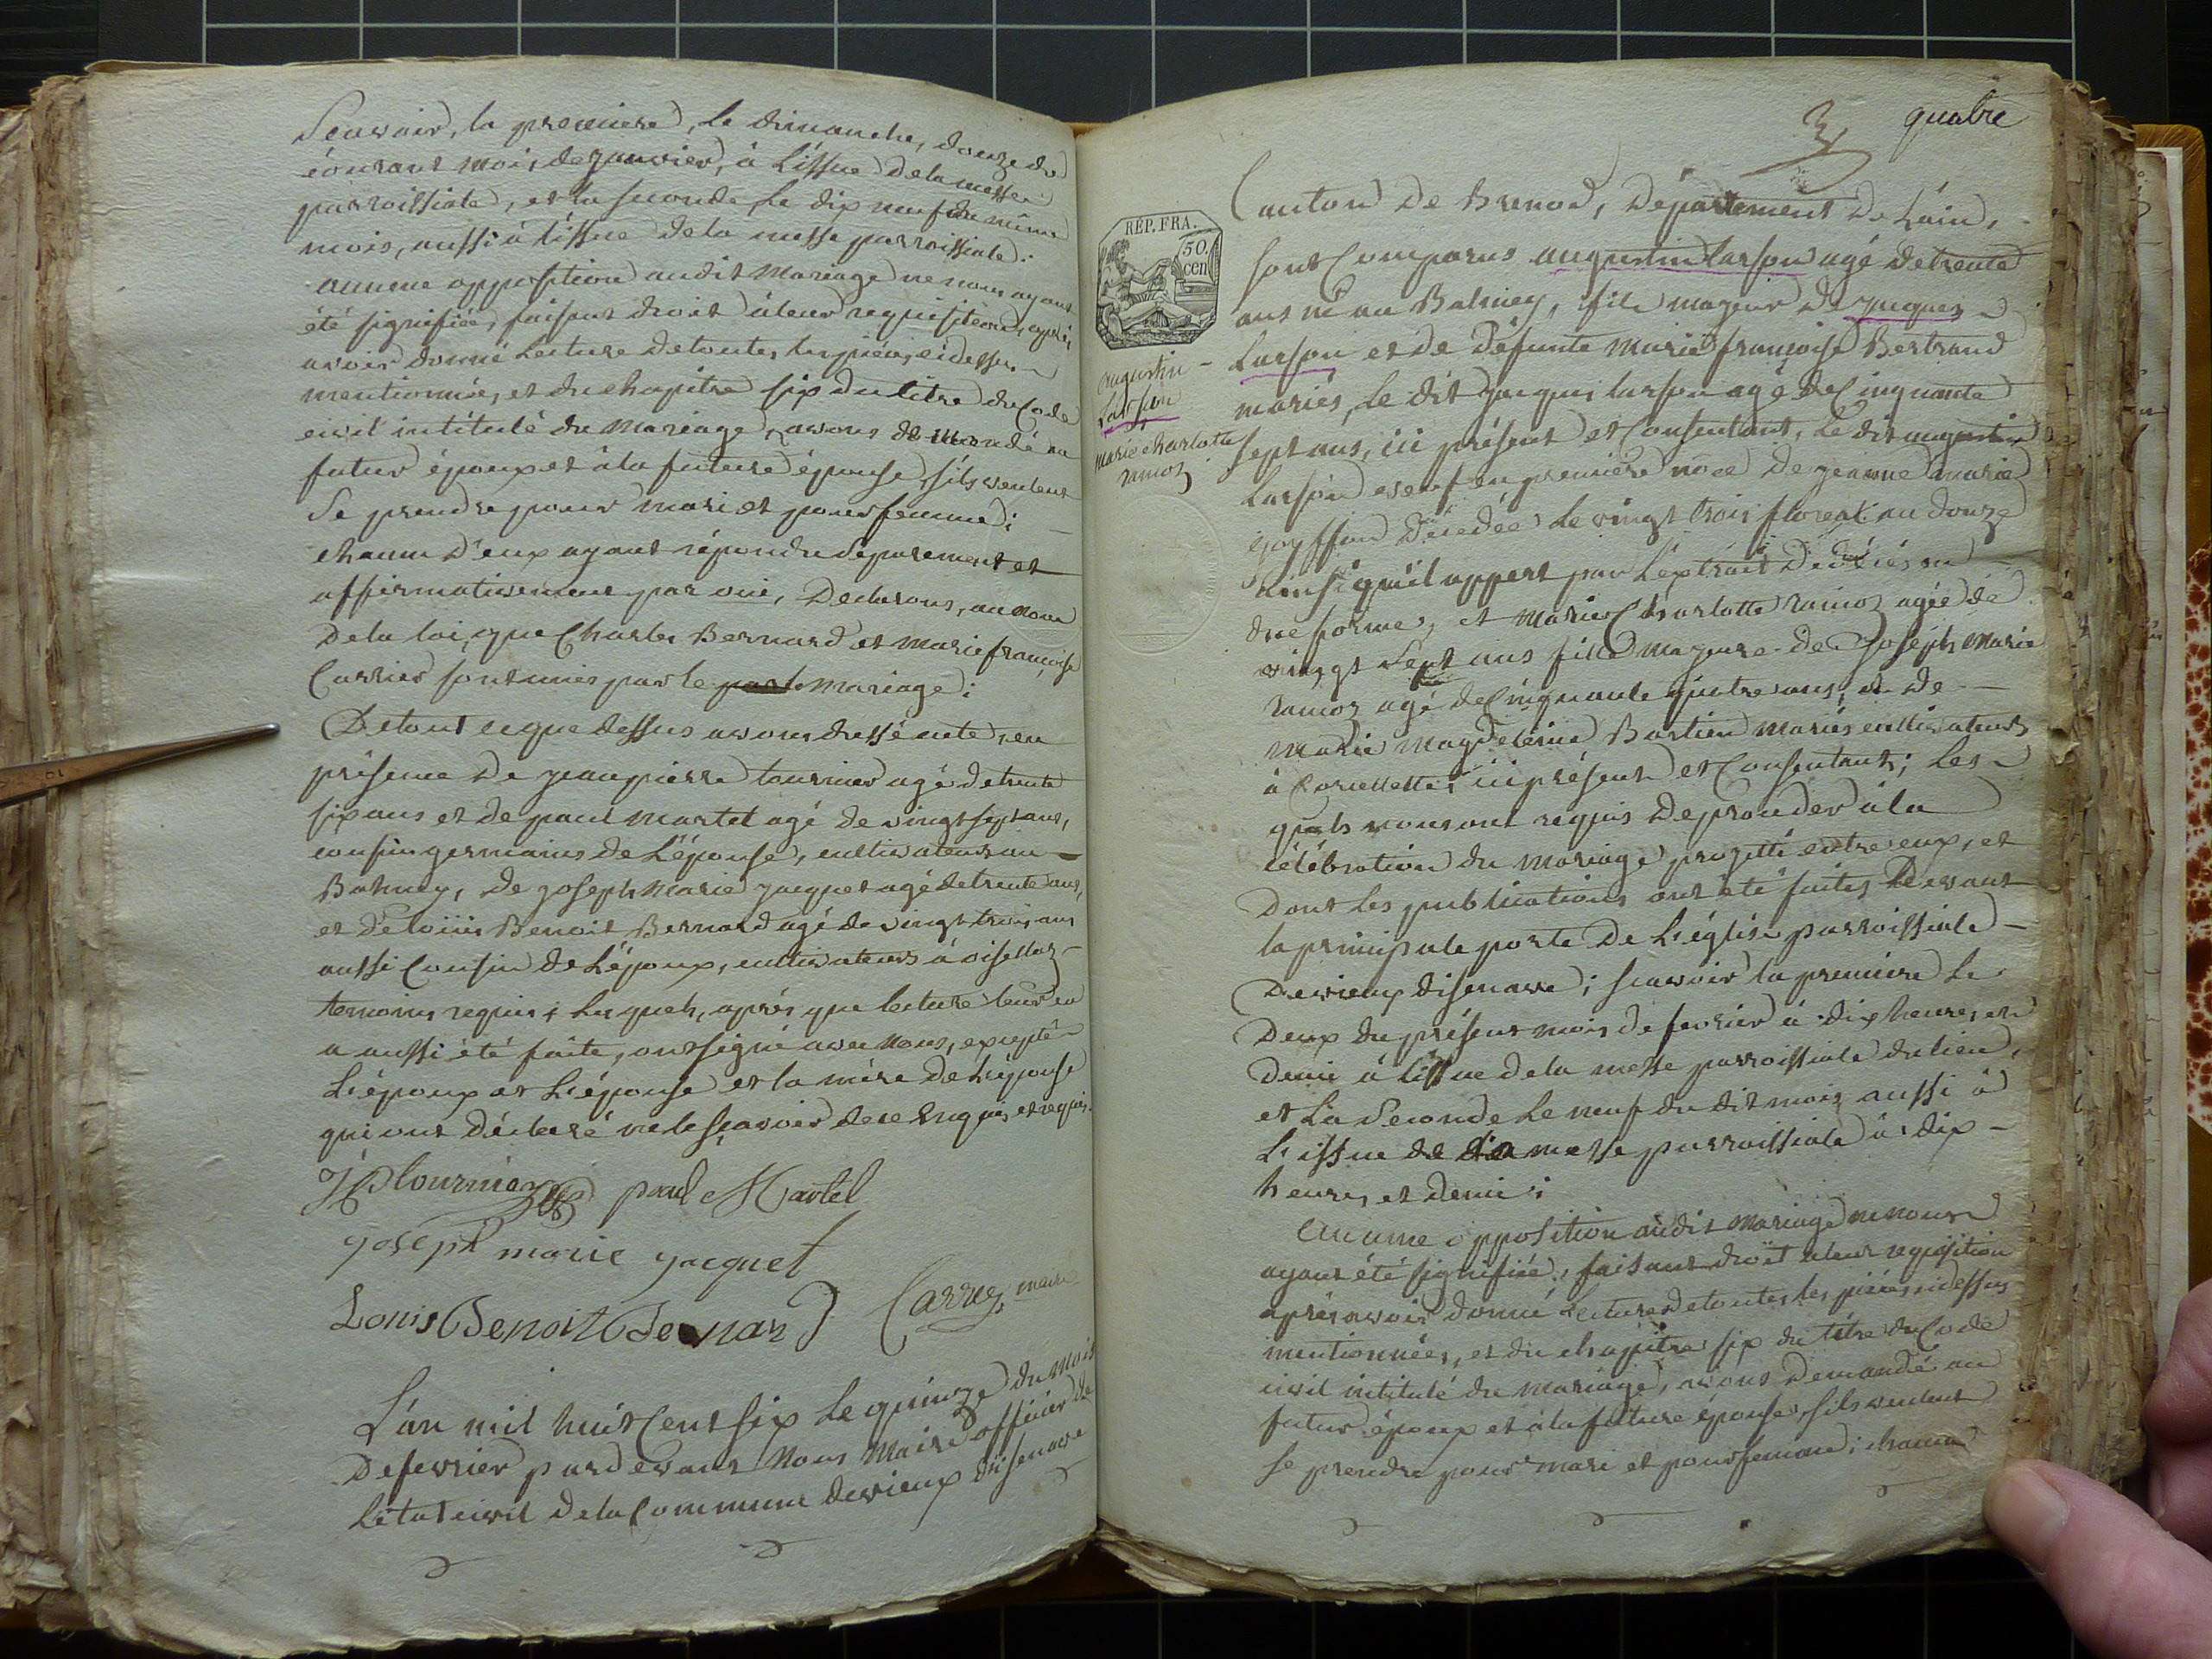 Scavoir, la premiere, le dimanche, douze du
courant mois de janvier, à l'issue de la messe
parroissiale, et la seconde le dix neuf du même
mois, aussi à l'issue de la messe parroissiale.
aucune opposition audit mariage ne nous ayant
été signifiée, faisant droit à leur requisition, après
avoir donné lecture de toutes les pièces ci dessus
mentionnées, et du chapitre six du titre du Code
civil intitulé du mariage, avons demandé au
futur époux et à la future épouse, s'ils veulent
se prendre pour mari et pour femme ;
chacun d'eux ayant répondu separement et
affirmativement par oui, Declarons, au nom
De la loi, que Charles Bernard et marie françoise
Carrier sont unis par le mariage ;
De tout ce que dessus avons dressé acte, en
présence de jean pierre tournier agé de trente
six ans et de paul martel agé de vingt sept ans,
cousin germains de l'épouse, cultivateurs au
Balmey, de joseph marie jacquet agé de trente ans,
et de louis Benoit Bernard agé de vingt trois ans
aussi Cousin de l'époux, cultivateurs à oisellaz
temoins requis ; lesquels, après que lecture leur en
a aussi été faite, ont signé avec nous, excepté
L'époux et L'épouse et la mère de L'épouse
qui ont déclaré ne le sçavoir de ce enquis et requis.
JP tournier paul Martel
joseph marie jacquet
Louis Benoit Bernard Carrier maire
L'an mil huit Cent six le quinze du mois
De fevrier pardevant Nous Maire officier de
L'état civil de la Commune devieux disenave
quatre
Canton De Brenod, Département De L'ain,
RÉP. FRA.
50
cen
sont Comparus augustin Larson agé de trente
ans né au Balmey, fils majeur de jacques
Larson et de défunte marie françoise Bertrand
mariés, le dit jacques Larson agé de Cinquante
augustin
Larson
et
marie charlotte
ramoz
sept ans, ici présent et Consentant, le dit augustin
Larson veuf en premiere noce de jeanne marie
Goyffon Décedée le vingt trois floreal an douze
ainsi qu'il appert par L'extrait De décès en
due forme, et Marie Charlotte ramoz agée de
vingt Sept ans fille majeure de Joseph Marie
ramoz agé de Cinquante quatre ans, et de
marie magdeleine Bastien mariés cultivateurs
à Corcellette, ici présent et Consentant ; Les
quels nous ont requis De proceder à la
célébration du mariage projetté entre eux, et
Dont Les publications ont été faites Devant
la principale porte De L'église parroissiale
De vieux disenave ; scavoir la premiere le
Deux du présent mois de fevrier à dix heures et
Demie à l'issue de la messe parroissiale du lieu,
et La Seconde Le neuf du dit mois aussi à
L'issue de la messe parroissiale à dix
heures et demie ;
Aucune opposition audit mariage ne nous
ayant été signifiée, faisant droit à leur requisition
après avoir donné Lecture de toutes les pièces ci dessus
mentionnées, et du chapitre six du titre du Code
civil intitulé du mariage, avons Demandé au
futur époux et à la future épouse, s'ils veulent
se prendre pour mari et pour femme ; chacun